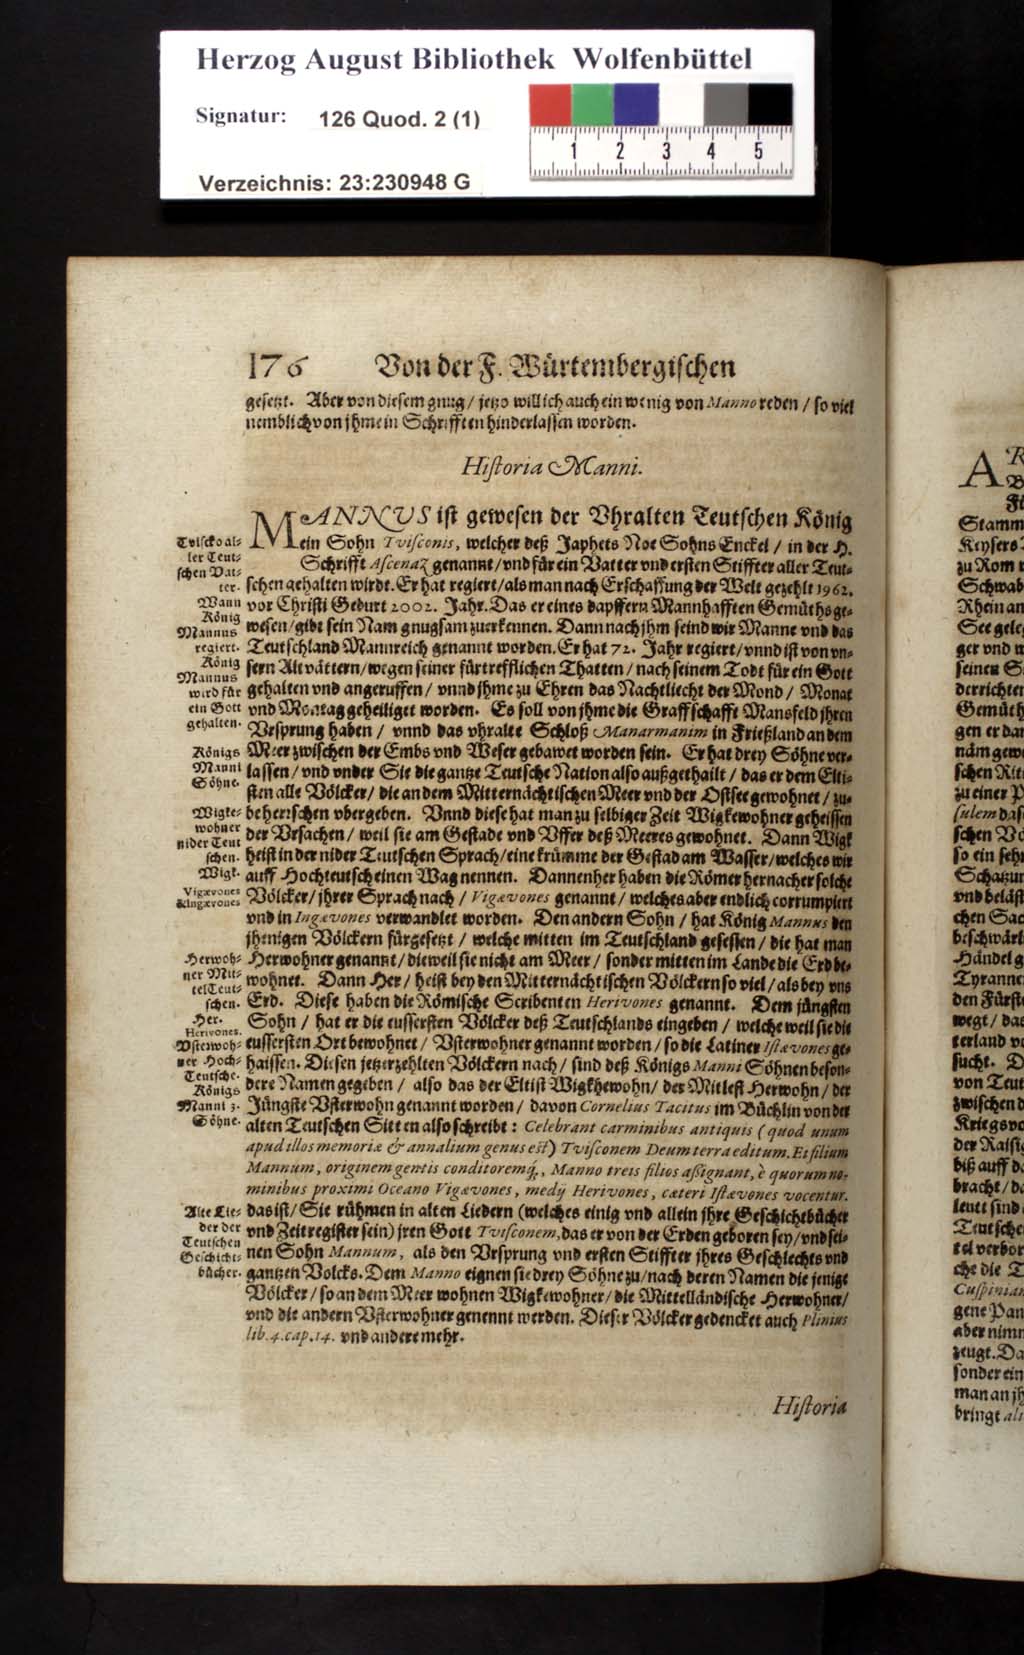 Herzog August Bibliothek Wolfenbüttel
Signatur: 126 Quod. 2 (1)
1 2 3 4 5
Verzeichnis: 23:230948 G
176 Von der F. Würtembergischen
gesetzt. Aber von diesem gnug / jetzo will ich auch ein wenig von Manno reden / so viel
nemblich von jhme in Schrifften hinderlassen worden.
Historia Manni.
MANNUS ist gewesen der Vhralten Teutschen König
ein Sohn Tvisconis, welcher deß Japhets Noe Sohns Enckel / in der H.
Schrifft Ascenaz genannt / vnd für ein Vatter vnd ersten Stiffter aller Teut-
schen gehalten wirdt. Er hat regiert / als man nach Erschaffung der Welt gezehlt 1962.
vor Christi Geburt 2002. Jahr. Das er eines dapffern Mannhafften Gemüths ge-
wesen / gibt sein Nam gnugsam zuerkennen. Dann nach jhm seind wir Manne vnd das
Teutschland Mannreich genannt worden. Er hat 72. Jahr regiert / vnnd ist von vn-
sern Altvättern / wegen seiner fürtrefflichen Thatten / nach seinem Todt für ein Gott
gehalten vnd angeruffen / vnnd jhme zu Ehren das Nachtliecht der Mond / Monat
vnd Montag geheiliget worden. Es soll von jhme die Graffschafft Mansfeld jhren
Vrsprung haben / vnnd das vhralte Schloß Manarmanim in Frießland an dem
Meer zwischen der Embs vnd Weser gebawet worden sein. Er hat drey Söhne ver-
lassen / vnd vnder Sie die gantze Teutsche Nation also außgethailt / das er dem Elti-
sten alle Völcker / die an dem Mitternächtischen Meer vnd der Ostsee gewohnet / zu-
beherrschen vbergeben. Vnnd diese hat man zu selbiger Zeit Wigkewohner geheissen
der Vrsachen / weil sie am Gestade vnd Vffer deß Meeres gewohnet. Dann Wigk
heist in der nider Teutschen Sprach / eine krümme der Gestad am Wasser / welches wir
auff Hochteutsch einen Wag nennen. Dannenher haben die Römer hernacher solche
Völcker / jhrer Sprach nach / Vigævones genannt / welches aber endlich corrumpiert
vnd in Ingævones verwandlet worden. Den andern Sohn / hat König Mannus den
jhenigen Völckern fürgesetzt / welche mitten im Teutschland gesessen / die hat man
Herwohner genannt / dieweil sie nicht am Meer / sonder mitten im Lande die Erd be-
wohnet. Dann Her / heist bey den Mitternächtischen Völckern so viel / als bey vns
Erd. Diese haben die Römische Scribenten Herivones genannt. Dem jüngsten
Sohn / hat er die eussersten Völcker deß Teutschlands eingeben / welche weil sie die
eussersten Ort bewohnet / Vsterwohner genannt worden / so die Latiner Istævones ge-
haissen. Diesen jetzerzehlten Völckern nach / sind deß Königs Manni Söhnen beson-
dere Namen gegeben / also das der Eltist Wigkhewohn / der Mitlest Herwohn / der
Jüngste Vsterwohn genannt worden / davon Cornelius Tacitus im Büchlin von der
alten Teutschen Sitten also schreibt: Celebrant carminibus antiquis (quod unum
apud illos memoriæ & annalium genus est) Tvisconem Deum terra editum. Et filium
Mannum, originem gentis conditoremq́, Manno treis filios assignant, è quorum no-
minibus proximi Oceano Vigævones, medij Herivones, cæteri Istævones vocentur.
das ist / Sie rühmen in alten Liedern (welches einig vnd allein jhre Geschichtbücher
vnd Zeitregister sein) jren Gott Tvisconem, das er von der Erden geboren sey / vnd sei-
nen Sohn Mannum, als den Vrsprung vnd ersten Stiffter jhres Geschlechts vnd
gantzen Volcks. Dem Manno eignen sie drey Söhne zu / nach deren Namen die jenige
Völcker / so an dem Meer wohnen Wigkewohner / die Mittelländische Herwohner /
vnd die andern Vsterwohner genennt werden. Dieser Völcker gedencket auch Plinius
lib. 4. cap. 14. vnd andere mehr.
Historia
Tvisco al-
ler Teut-
schen Vat-
ter.
Wann
König
Mannus
regiert.
König
Mannus
wird für
ein Gott
gehalten.
Königs
Manni
Söhne.
Wigke-
wohner
nider Teut
schen.
Wigk.
Vigævones
& Ingævones
Herwoh-
ner Mit-
tel Teut-
schen.
Her.
Herivones.
Vsterwoh-
ner Hoch-
Teutsche.
Königs
Manni 3.
Söhne.
Alte Lie-
der der
Teutschen
Geschicht-
bücher.
A
Stamm
Keysers
zu Rom
Schwab
Rhein an
See gele
ger vnd
seinen
derrichte
Gemüth
gen er da
näm gew
schen Rit
zu einer
sulem das
schen Vö
so ein seh
Schatzun
vnd beläst
chen Sac
beschwärl
Händel g
Tyranne
den Fürst
wegt / das
terland v
sucht. D
von Teut
zwischen
Kriegsvo
der Raisig
biß auff d
bracht / d
leut sind
Teutsche
tel verbor
che die T
Cuspinian
gene Pan
aber nim
zeugt. Da
sonder ein
man an jh
bringt